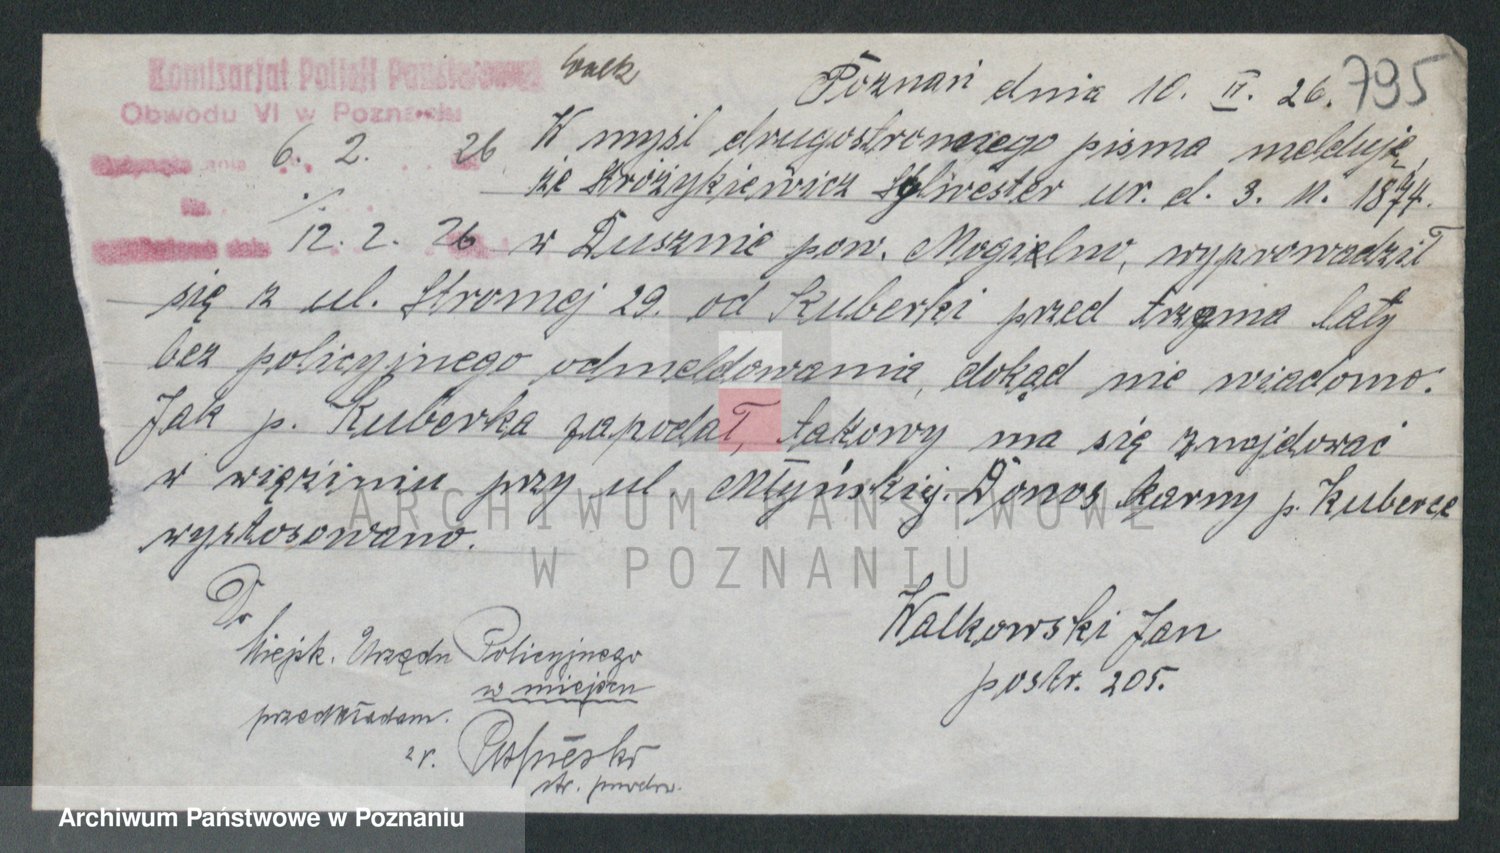 Komisarjat Policji Państwowej
Obwodu VI w Poznaniu
6. 2. 26
Nr.
12. 2. 26
Poznań dnia 10. II. 26.
795
W myśl drugostronnego pisma melduję,
że Strożykiewicz Sylwester ur. d. 3. 11. 1874.
w Dusznie pow. Mogielno, wyprowadził
się z ul. Stromej 29. od Kuberki przed trzema laty
bez policyjnego odmeldowania, dokąd nie wiadomo.
Jak p. Kuberka zapodał, takowy ma się znajdować
w więziniu przy ul Młyńskiej. Donos karny p. Kuberce
wystosowano.
Walkowski Jan
postr. 205.
Do
Miejsk. Urzędu Policyjnego
w miejscu
przedkładam.
st. przodw.
ARCHIWUM PAŃSTWOWE
W POZNANIU
Archiwum Państwowe w Poznaniu